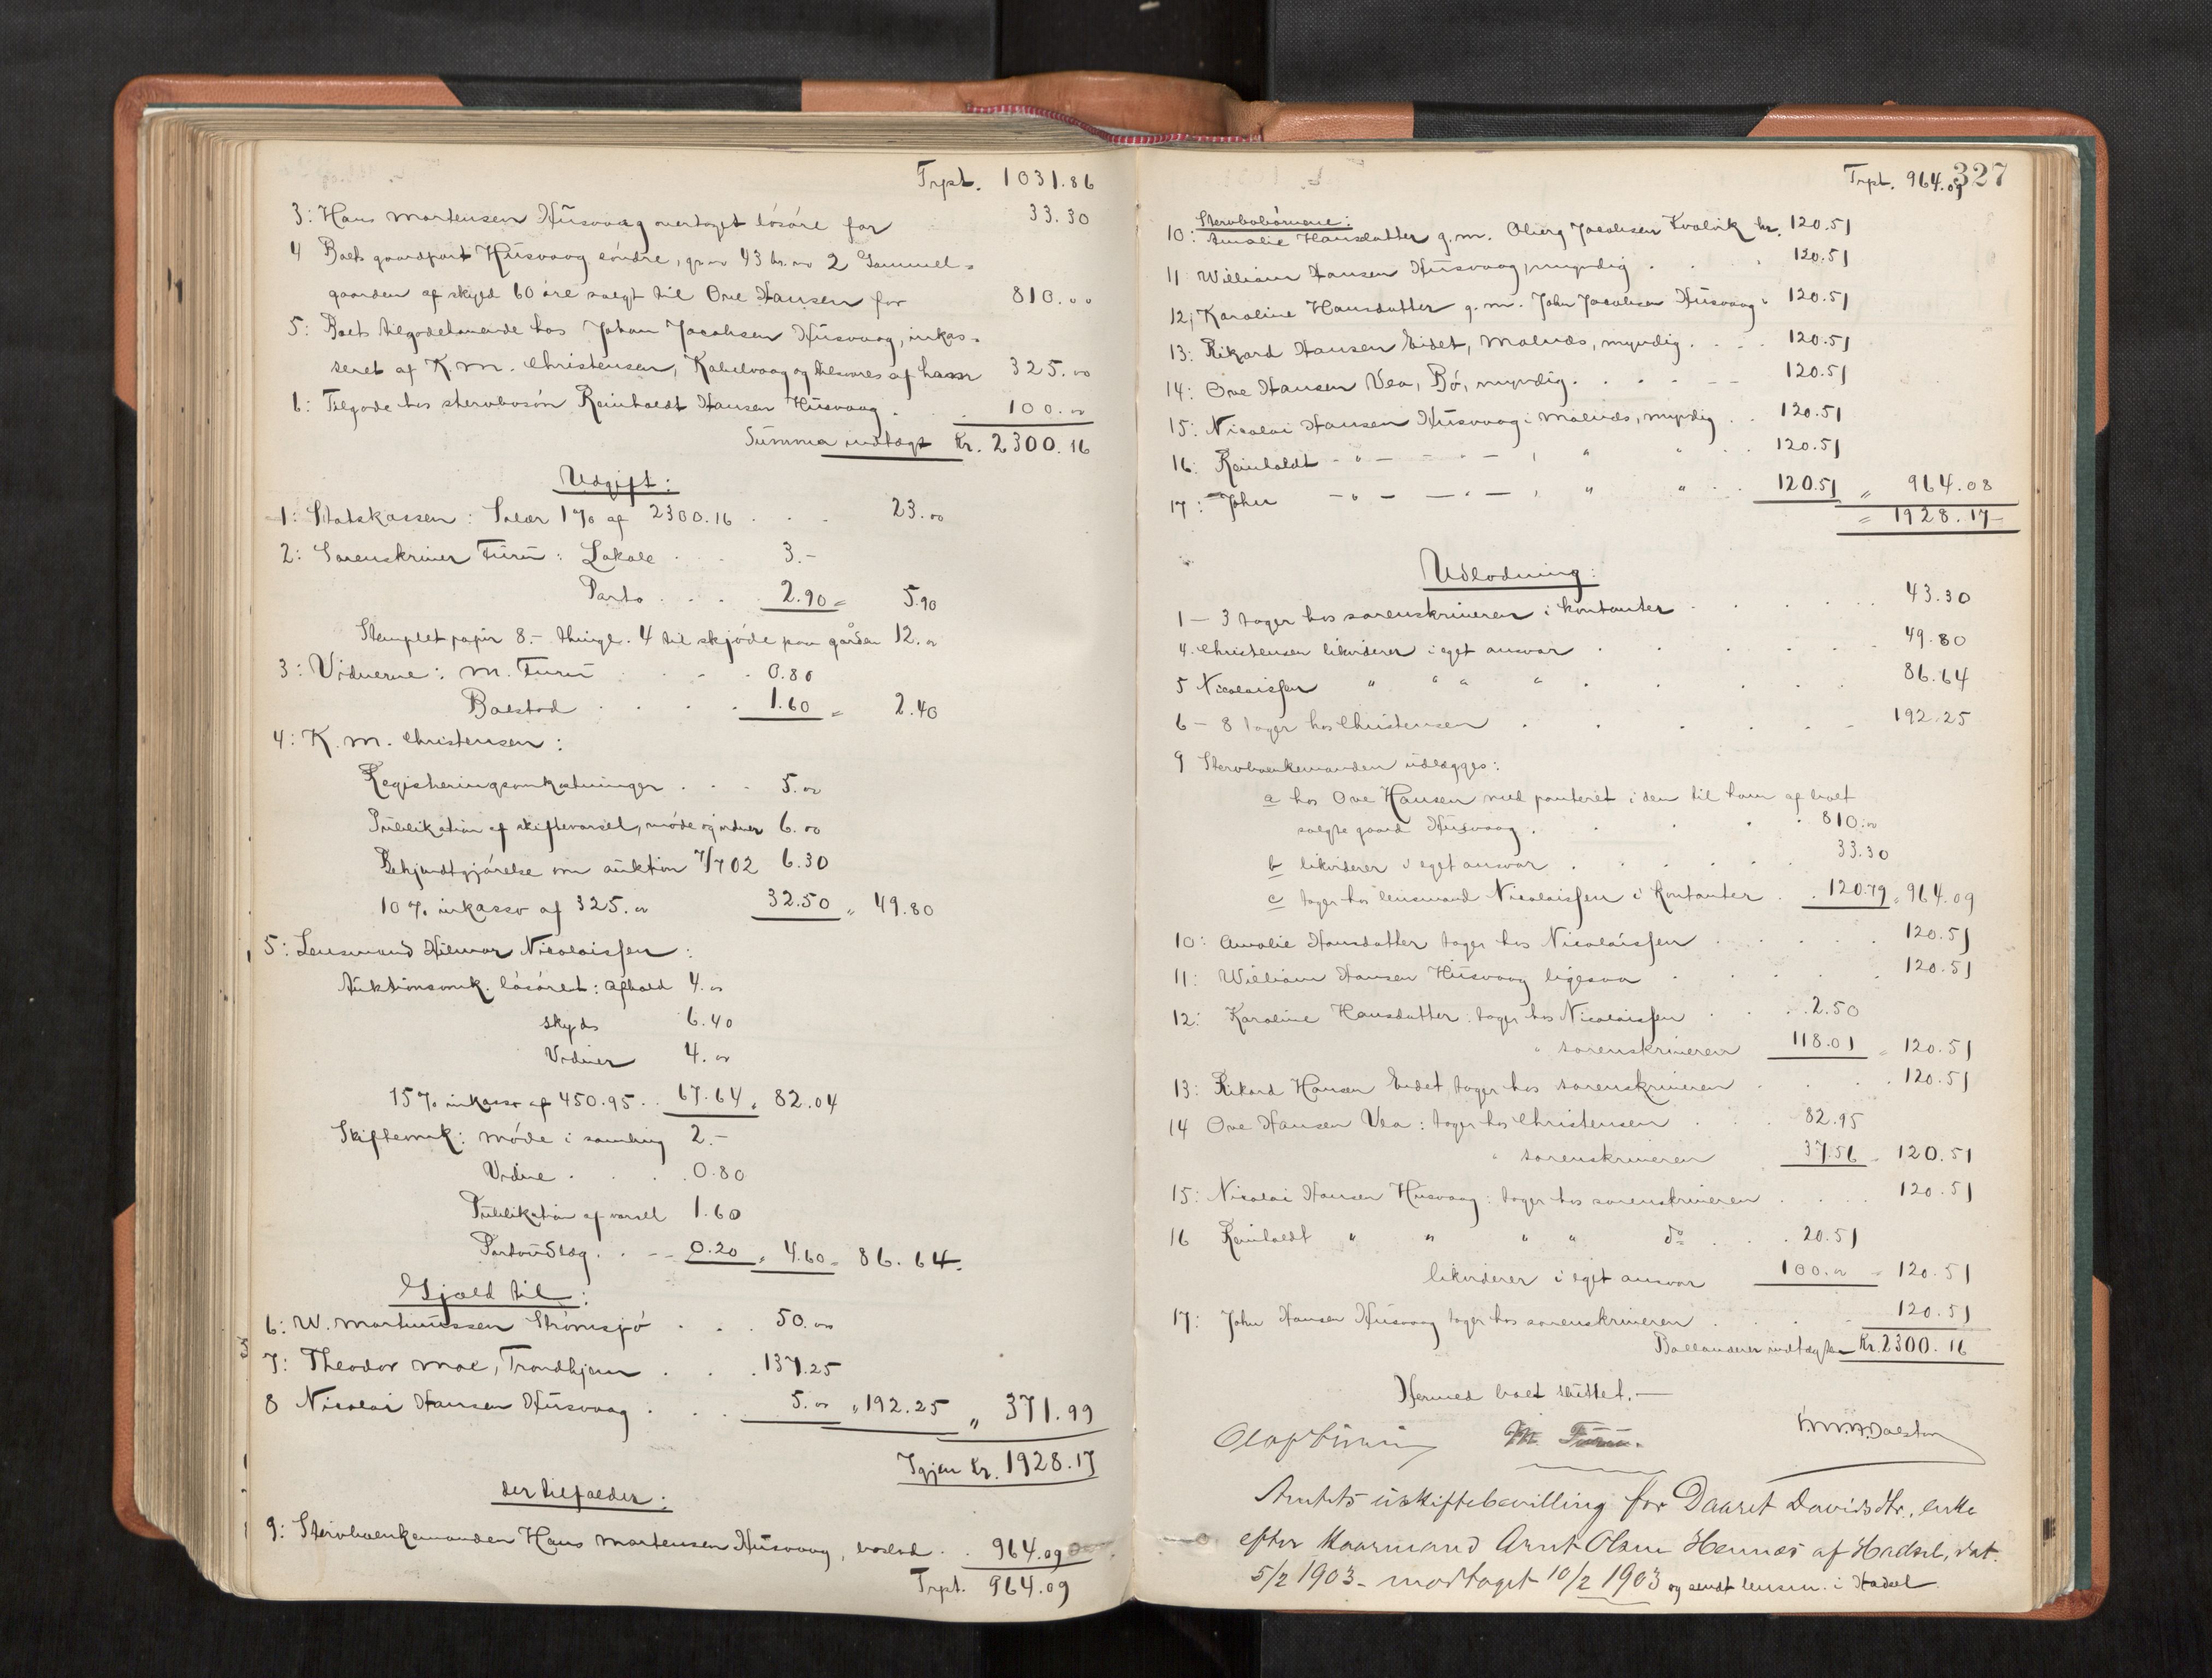 Trpt. 1031.86
3: Hans Mortensen Husvaag overtaget løsøre for 33.30
4 Boets gaardpart Husvaag søndre, gr.no 43 br.no 2 Gammel-
gaarden af skyld 60 øre solgt til Ove Hansen for 810.00
5: Boets tilgodehavende hos Johan Jacobsen Husvaag, inkas-
seret af K. M. Christensen, Kabelvaag og tilsvares af ham 325.00
6: Tilgode hos stervbosøn Reinholdt Hansen Husvaag . . 100.00
Summa indtægt Kr. 2300.16
Udgift:
1: Statskassen: Salær 1% af 2300.16 . . . 23.00
2: Sorenskriver Furu: Lokale . . 3.-
Porto . . . 2.90 = 5.90
Stemplet papir 8.- thingl. 4 til skjøde paa gården 12.00
3: Vidnerne: M. Furu . . . 0.80
Balstad . . . . 1.60 = 2.40
4: K. M. Christensen:
Registreringsomkostninger . . . 5.00
Publikation af skiftevarsel, møde og vidner 6.00
Bekjendtgjørelse om auktion 7/7 02 6.30
10% inkasso af 325.00 32.50 " 49.80
5: Lensmand Hilmar Nicolaissen:
Auktionsomk. løsøret: afhold 4.00
skyds 6.40
Vidner 4.00
15% inkasso af 450.95 . . 67.64 " 82.04
Skifteomk: møde i samling 2.-
Vidne . . . . 0.80
Publikation af varsel 1.60
Portoudlæg . . -- 0.20 " 4.60 = 86.64.
Gjæld til:
6: W. Martinussen Strømsjø . . . 50.00
7: Theodor Moe, Trondhjem . . . 137.25
8 Nicolai Hansen Husvaag . . . 5.00 " 192.25 " 371.99
Igjen Kr. 1928.17
der tilfalder:
9: Stervboenkemanden Hans Mortensen Husvaag, boslod . . 964.09
Trpt. 964.09
327
Trpt. 964.09
Stervbobørnene:
10: Amalie Hansdatter g.m. Oluf Jacobsen Kvalvik kr. 120.51
11: William Hansen Husvaag, myndig . . . 120.51
12: Karoline Hansdatter g.m. John Jacobsen Husvaag " 120.51
13: Rikard Hansen Eidet, Malnæs, myndig . . . . 120.51
14: Ove Hansen Vea, Bø, myndig . . . . -- 120.51
15: Nicolai Hansen Husvaag i Malnæs, myndig . . 120.51
16: Reinholdt - " - - " - , " " . . 120.51
17: John - " - - " - , " " . . 120.51 " 964.08
= 1928.17
Udlodning:
1 - 3 tager hos sorenskriveren i kontanter . . . . . 43.30
4. Christensen likviderer i eget ansvar . . . . . 49.80
5 Nicolaissen " " " " . . . . . 86.64
6 - 8 tager hos Christensen . . . . . 192.25
9 Stervboenkemanden udlægges:
a hos Ove Hansen med panteret i den til ham af boet
solgte gaard Husvaag . . . . . 810.00
b likviderer i eget ansvar . . . . . 33.30
c tager hos lensmand Nicolaissen i Kontanter . . 120.79 " 964.09
10: Amalie Hansdatter tager hos Nicolaissen . . . . . 120.51
11: William Hansen Husvaag ligesaa . . . . . 120.51
12: Karoline Hansdatter: tager hos Nicolaissen . . . 2.50
" sorenskriveren 118.01 = 120.51
13: Rikard Hansen Eidet tager hos sorenskriveren . . . . 120.51
14 Ove Hansen Vea: tager hos Christensen . . . 82.95
" sorenskriveren 37.56 = 120.51
15: Nicolai Hansen Husvaag: tager hos sorenskriveren . . . . 120.51
16 Reinholdt " " " " do . . . 20.51
likviderer i eget ansvar 100.00 = 120.51
17: John Hansen Husvaag tager hos sorenskriveren . . . 120.51
Ballancerer indtægten Kr. 2300.16
Hermed boet sluttet. —
M. Furu.
Amtets uskiftebevilling for Daaret Davidsdtr., enke
efter Kaarmand Arnt Olsen Hennæs af Hadsel, dat.
5/2 1903 - modtaget 10/2 1903 og sendt lensm. i Hadsel.